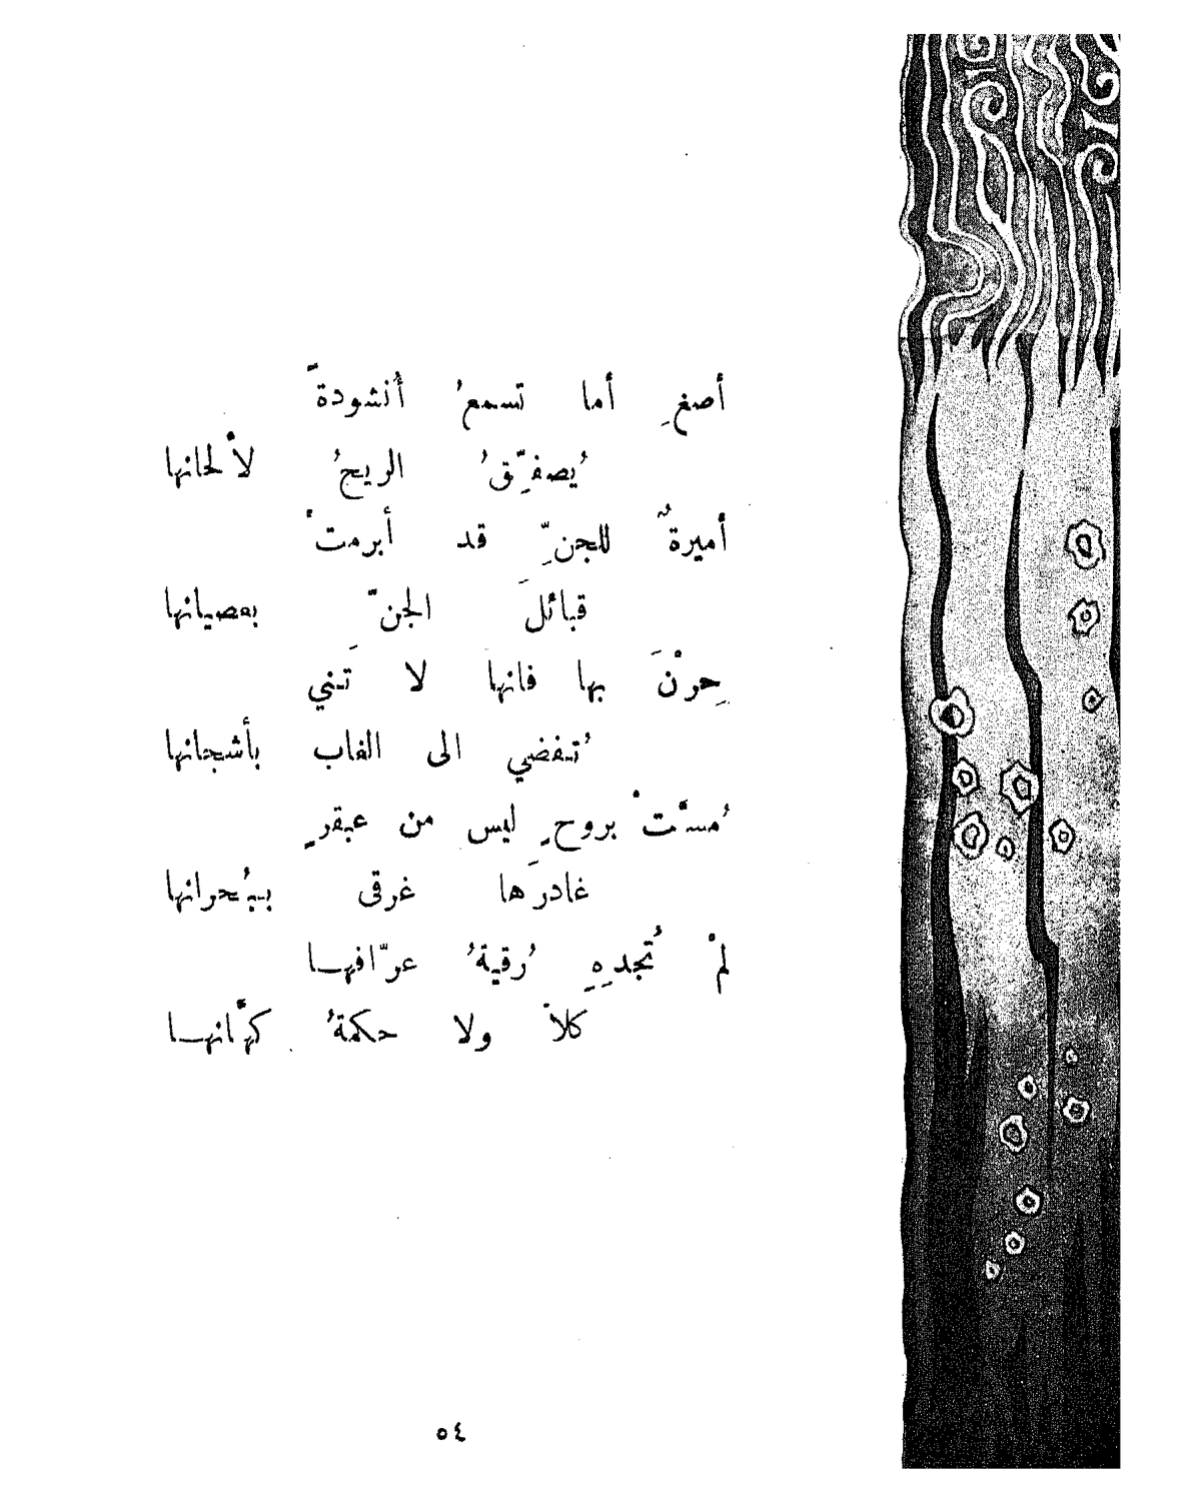 أصغِ أما تسمعُ أُنشودةً
يُصفِّقُ الريحُ لألحانها
أميرةٌ للجنِّ قد أبرمتْ
قبائلَ الجنّ بعصيانها
حِرْنَ بها فانها لا تَني
تُفضي الى الغاب بأشجانها
مُسَّتْ بروحٍ ليس من عبقرٍ
غادرَها غرقى ببُحرانها
لمْ تُجدِهِ رُقيةُ عرّافهـا
كلاّ ولا حكمةُ كهّانهـا
٥٤